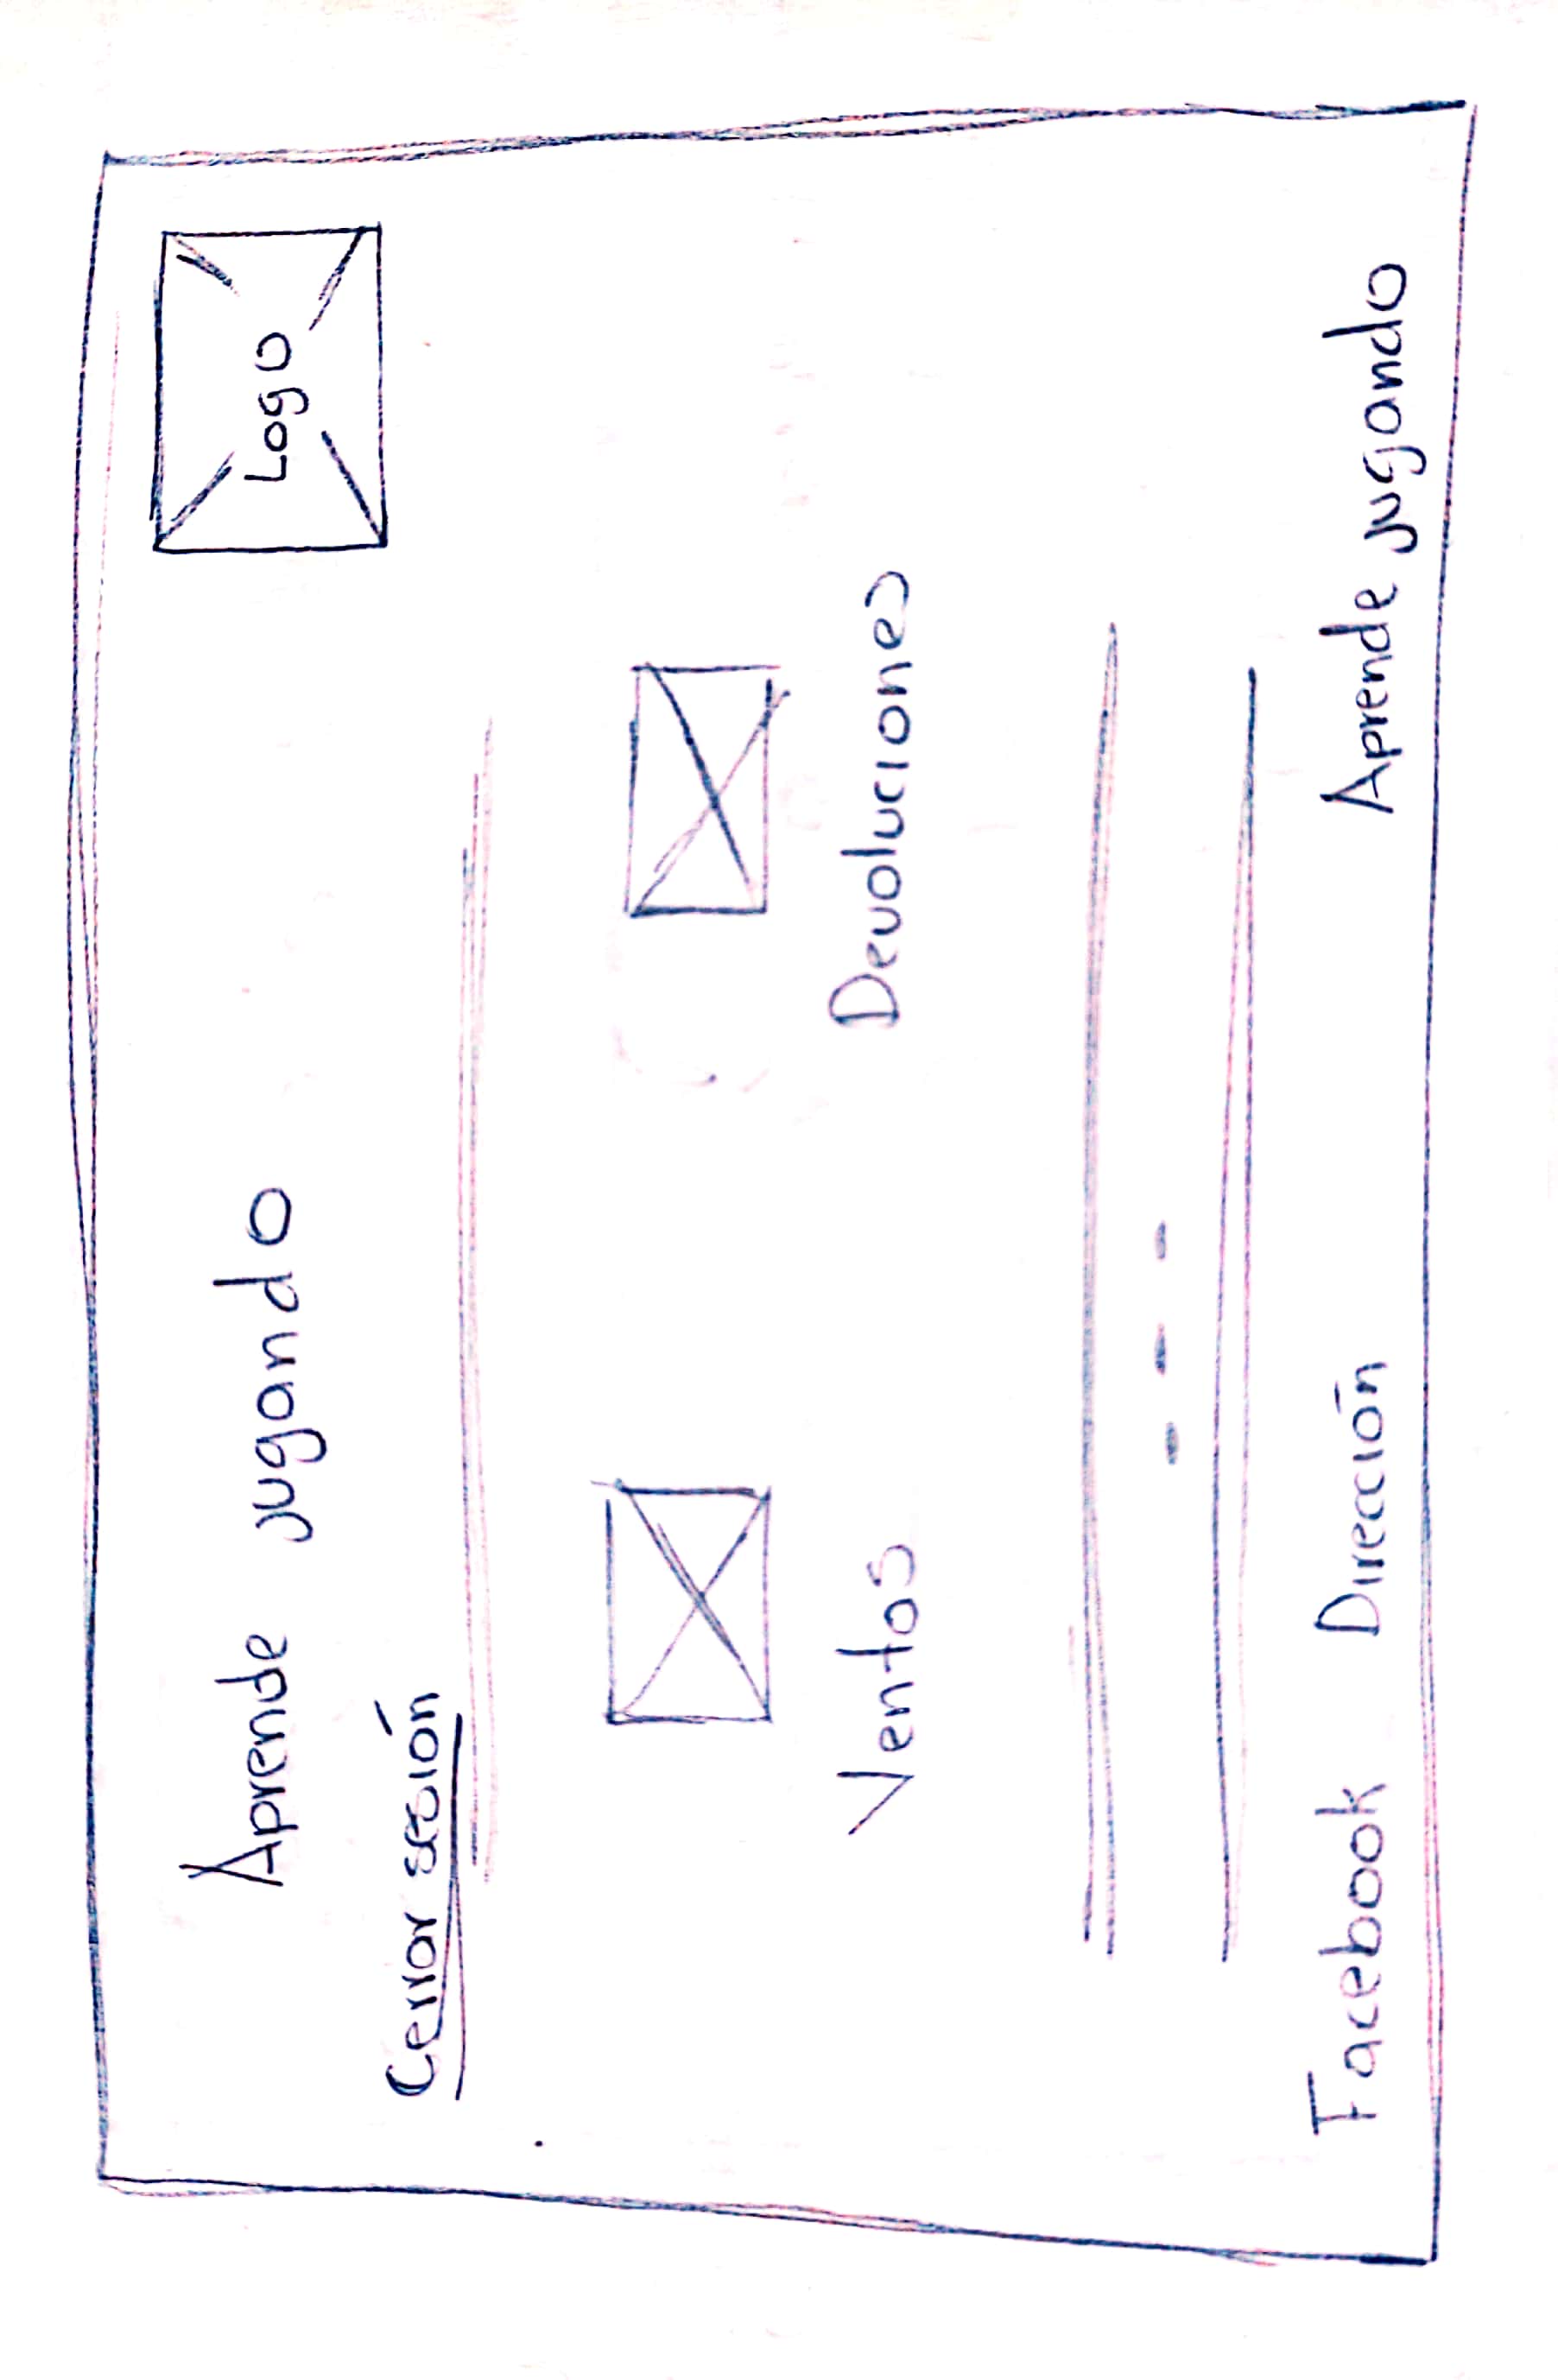 Aprende jugando
Logo
Cerrar sesión
Ventas
Devoluciones
Facebook
Dirección
Aprende jugando